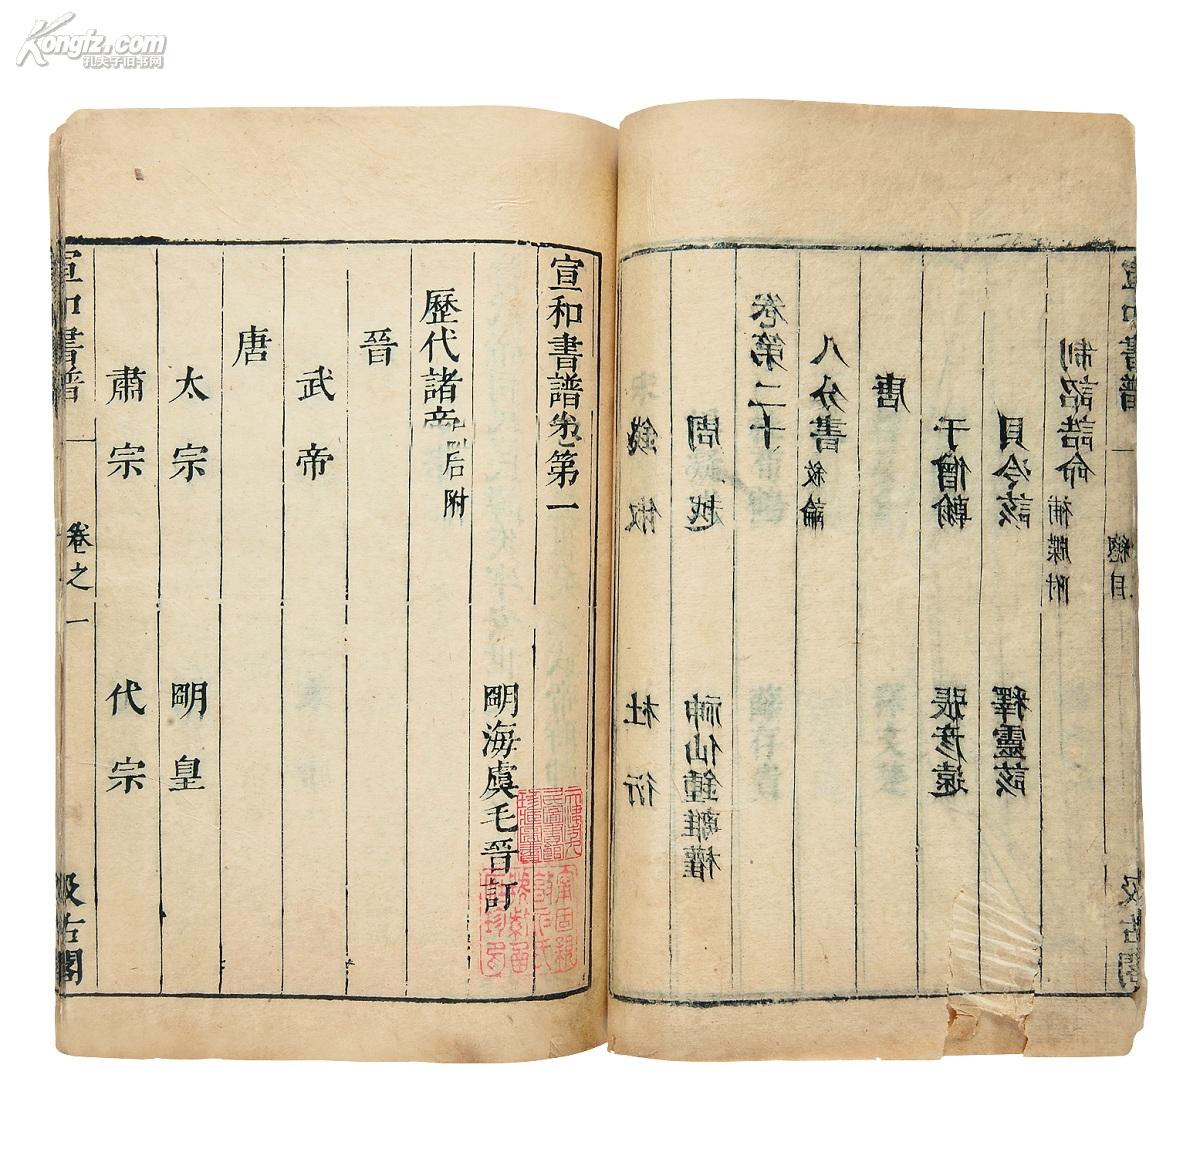 錢俶 杜衍
周越 神仙鍾離權
卷第二十
八分書 敘論
唐
于僧翰 張彥遠
貝冷該 釋靈該
制詔誥命 補牒附
宣和書譜 總目 汲古閣
宣和書譜卷第一
明海虞毛晉訂
歷代諸帝 后附
晉
武帝
唐
太宗 明皇
肅宗 代宗
宣和書譜 卷之一 汲古閣
Kongfz.com
孔夫子旧书网